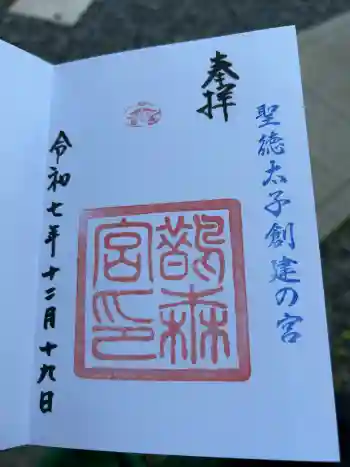 聖徳太子創建の宮
奉拝
鵲森
宮印
令和七年十二月十九日